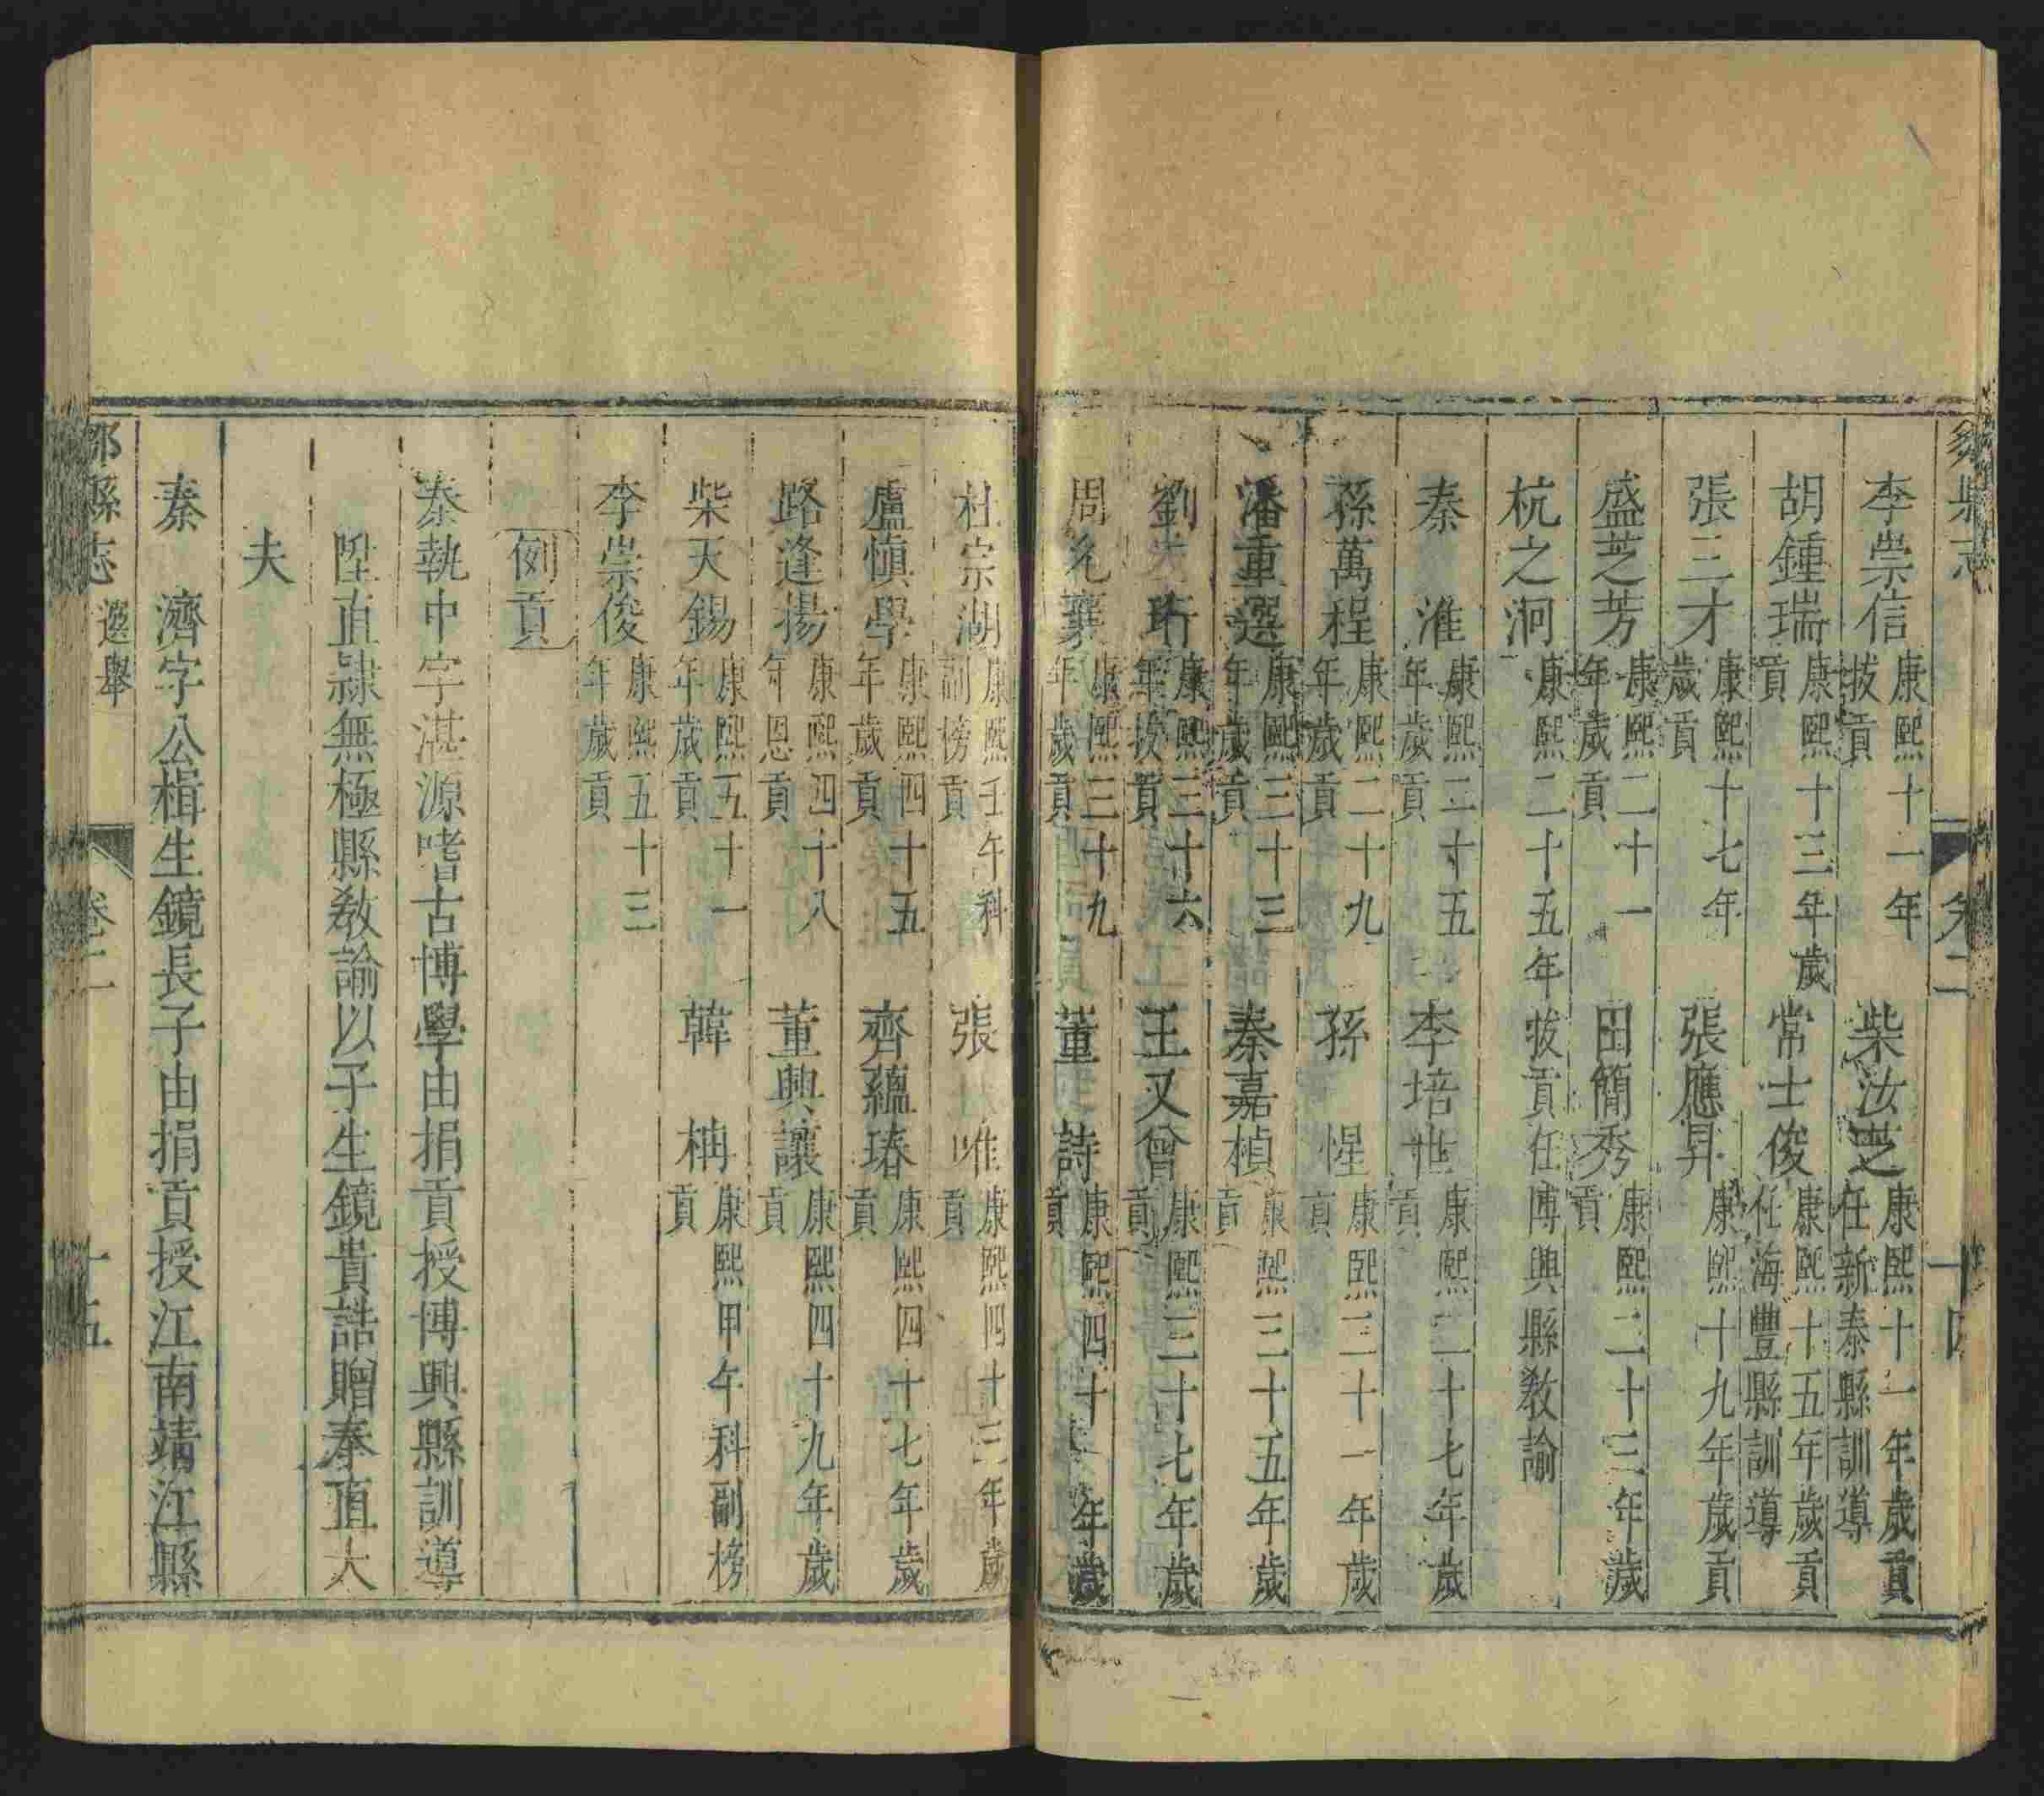 縣志 卷二 十四
李崇信 康熙十一年拔貢 柴汝芝 康熙十一年歲貢任新泰縣訓導
胡鍾瑞 康熙十三年歲貢 常士俊 康熙十五年歲貢任海豐縣訓導
張三才 康熙十七年歲貢 張應昇 康熙十九年歲貢
盛芝芳 康熙二十一年歲貢 田簡秀 康熙二十三年歲貢
杭之泂 康熙二十五年拔貢任博興縣教諭
秦 淮 康熙二十五年歲貢 李培 康熙二十七年歲貢
孫萬程 康熙二十九年歲貢 孫 惺 康熙三十一年歲貢
潘重選 康熙三十三年歲貢 秦嘉楨 康熙三十五年歲貢
劉 珩 康熙三十六年拔貢 王又曾 康熙三十七年歲貢
周允襄 康熙三十九年歲貢 董 詩 康熙四十一年歲貢
杜宗湖 康熙壬午科副榜貢 張 唯 康熙四十三年歲貢
盧愼學 康熙四十五年歲貢 齊蘊瑃 康熙四十七年歲貢
路逢揚 康熙四十八年恩貢 董興讓 康熙四十九年歲貢
柴天錫 康熙五十一年歲貢 韓 柟 康熙甲午科副榜貢
李崇俊 康熙五十三年歲貢
例貢
秦執中字湛源嗜古博學由捐貢授博興縣訓導
陞直隸無極縣教諭以子生鏡貴誥贈奉直大
夫
秦 濟字公楫生鏡長子由捐貢授江南靖江縣
鄒縣志 選舉 卷二 十五